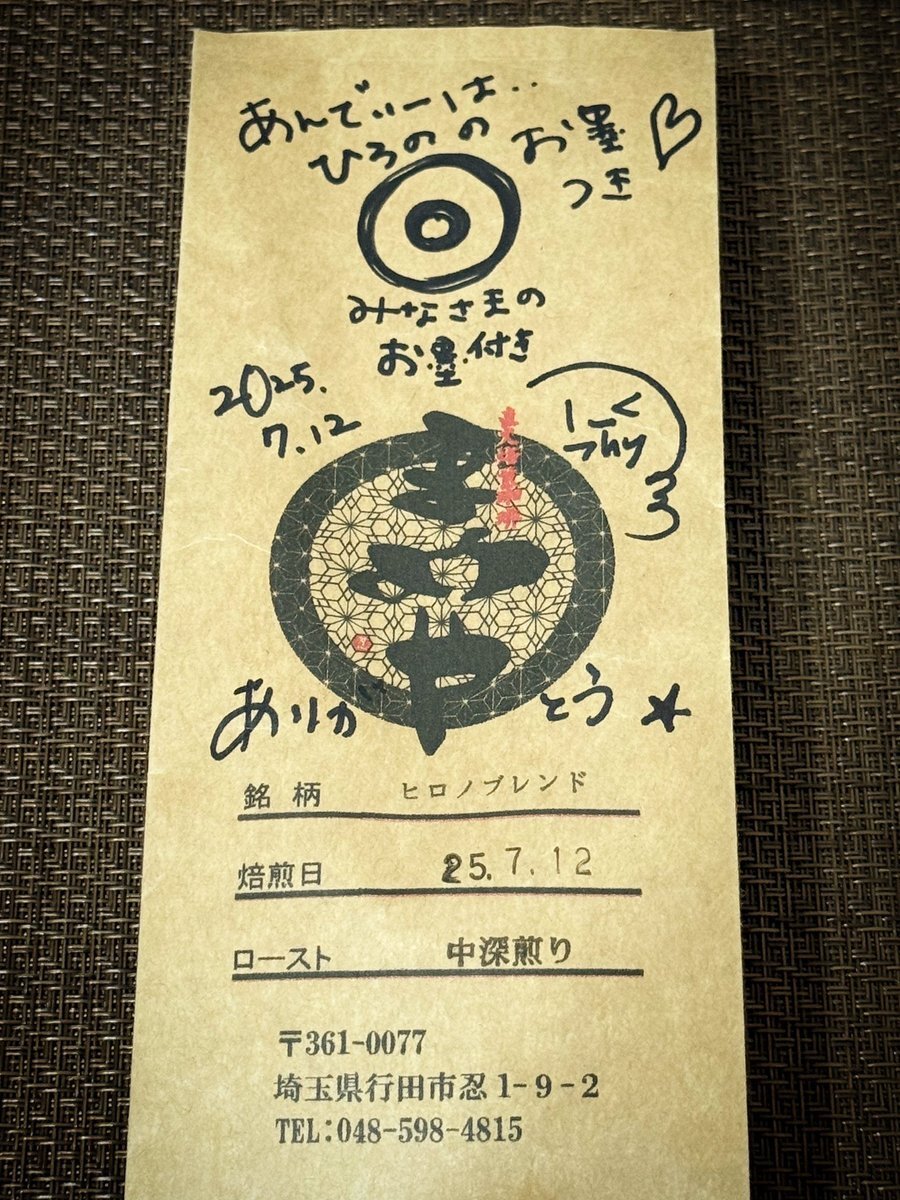 あんでぃーは..
ひろのの お墨つき
みなさまの
お墨付き
2025.
7.12
ありがとう
銘柄 ヒロノブレンド
焙煎日 25.7.12
ロースト 中深煎り
〒361-0077
埼玉県行田市忍1-9-2
TEL:048-598-4815